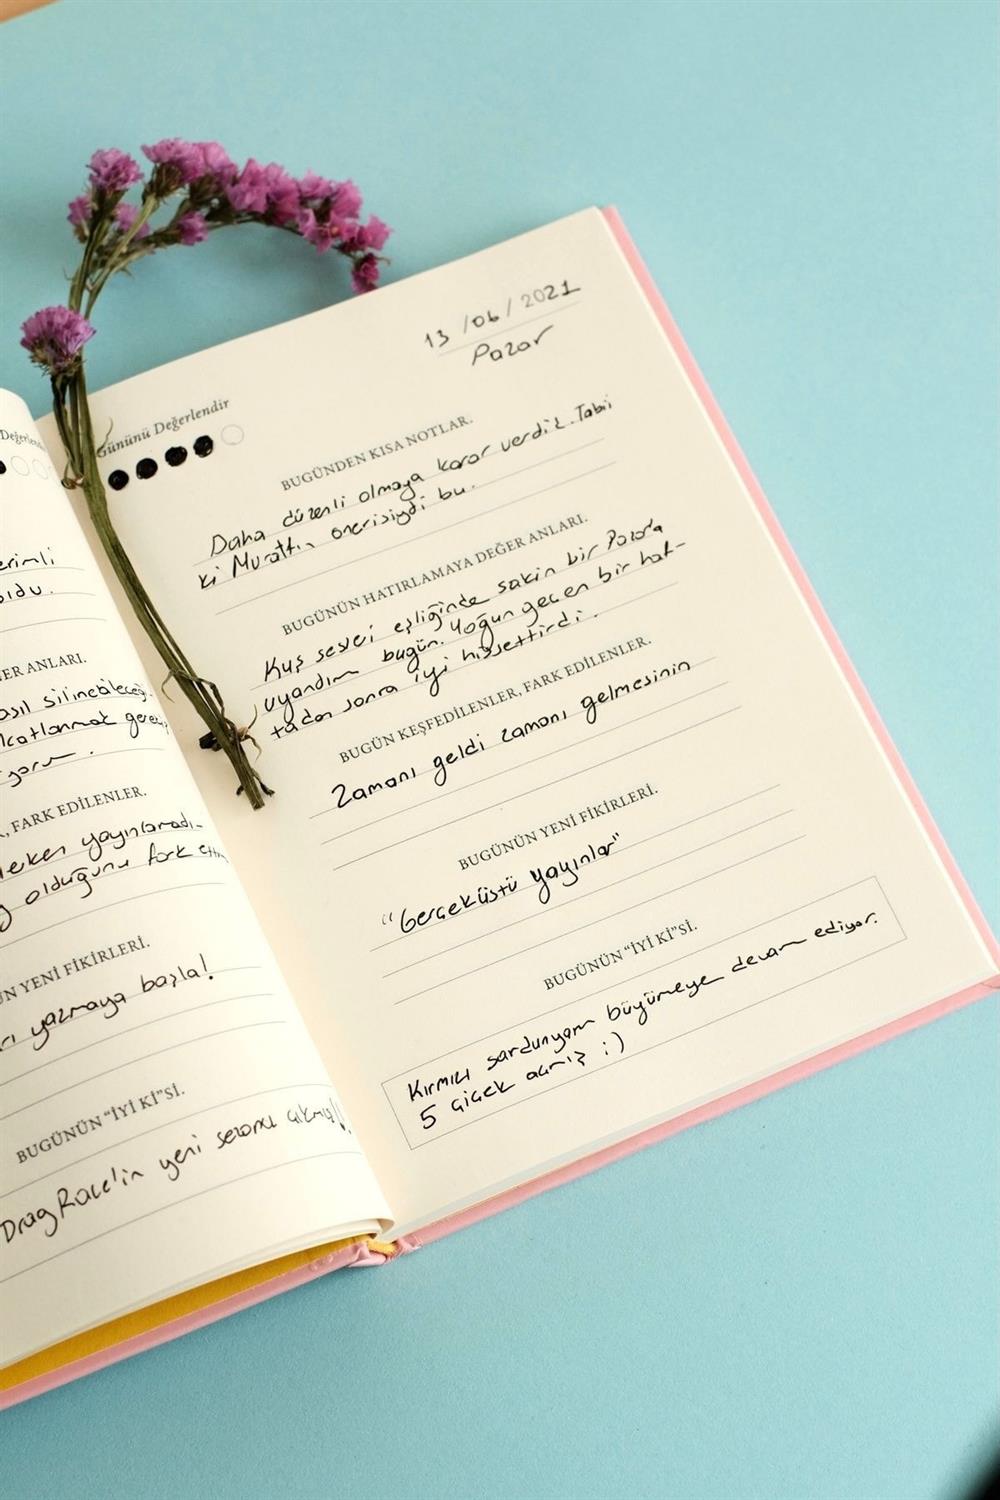 Değerlendir
erimli
oldu.
ER ANLARI.
asıl silinebileceği
katlanmak
, FARK EDİLENLER.
yayınlamadı-
olduğunu fark ettim
N YENİ FİKİRLERİ.
yazmaya başla!
BUGÜNÜN "İYİ Kİ"Sİ.
Drag Race'in yeni sezonu çıkmış!!
13/06/2021
Pazar
Gününü Değerlendir
BUGÜNDEN KISA NOTLAR.
Daha düzenli olmaya karar verdik. Tabii
ki Murat'ın önerisiydi bu.
BUGÜNÜN HATIRLAMAYA DEĞER ANLARI.
Kuş sesleri eşliğinde sakin bir Pazar'a
uyandım bugün. Yoğun geçen bir haf-
tadan sonra iyi hissettirdi.
BUGÜN KEŞFEDİLENLER, FARK EDİLENLER.
Zamanı geldi zamanı gelmesinin
BUGÜNÜN YENİ FİKİRLERİ.
"Gerçeküstü yayınlar"
BUGÜNÜN "İYİ Kİ"Sİ.
Kırmızı sardunyam büyümeye devam ediyor.
5 çiçek açmış :)